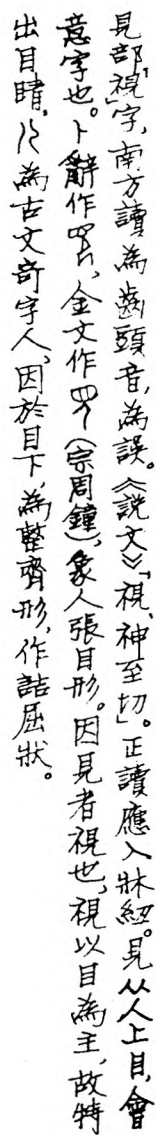 見部「視」字，南方讀為齒頭音，為誤。《說文》：「視，神至切」。正讀應入牀紐。見从人上目，會
意字也。卜辭作，金文作（宗周鐘），象人張目形。因見者視也，視以目為主，故特
出目睛，儿為古文奇字人，因於目下，為整齊形，作詰屈狀。